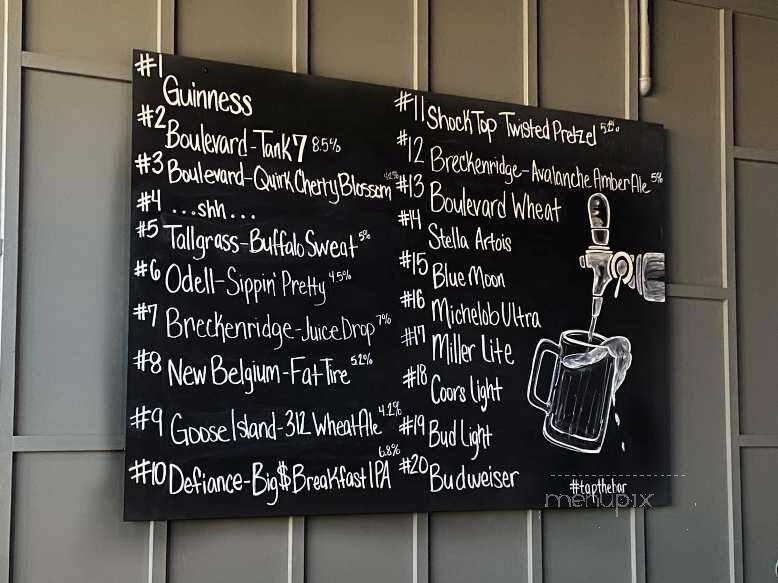 #1 Guinness
#2 Boulevard-Tank 7 8.5%
#3 Boulevard-Quirk Cherry Blossom
#4 ...shh...
#5 Tallgrass-Buffalo Sweat 5%
#6 Odell-Sippin' Pretty 4.5%
#7 Breckenridge-Juice Drop 7%
#8 New Belgium-Fat Tire 5.2%
#9 Goose Island-312 Wheat Ale 4.2%
#10 Defiance-Big$ Breakfast IPA 6.8%
#11 Shock Top Twisted Pretzel 5.2%
#12 Breckenridge-Avalanche Amber Ale 5%
#13 Boulevard Wheat
#14 Stella Artois
#15 Blue Moon
#16 Michelob Ultra
#17 Miller Lite
#18 Coors Light
#19 Bud Light
#20 Budweiser
#tapthebar
menupix